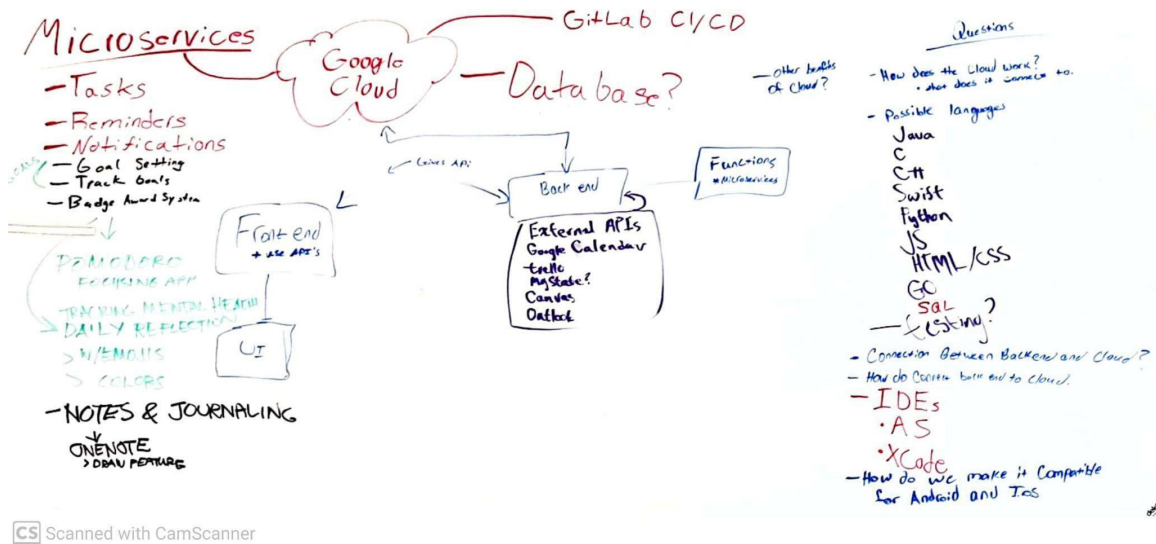 Microservices
- Tasks
- Reminders
- Notifications
- Goal Setting
- Track Goals
- Badge Award System
POMODERO
FOCUSING APP
TRACKING MENTAL HEALTH
DAILY REFLECTION
> W/EMOJIS
> COLORS
- NOTES & JOURNALING
ONENOTE
> DRAW FEATURE
Google
Cloud
- GitLab CI/CD
- Database?
- Other benefits
of Cloud?
Gives API
Front end
* use API's
UI
Back end
External APIs
Google Calendar
trello
MyState?
Canvas
Outlook
Functions
* Microservices
Questions
- How does the Cloud work?
• what does it connect to.
- Possible languages
Java
C
C++
Swift
Python
JS
HTML/CSS
GO
SQL
- testing?
- Connection Between Backend and Cloud?
- How do Connect back end to Cloud.
- IDEs
• AS
• XCode
- How do we make it Compatible
for Android and Ios
CS Scanned with CamScanner